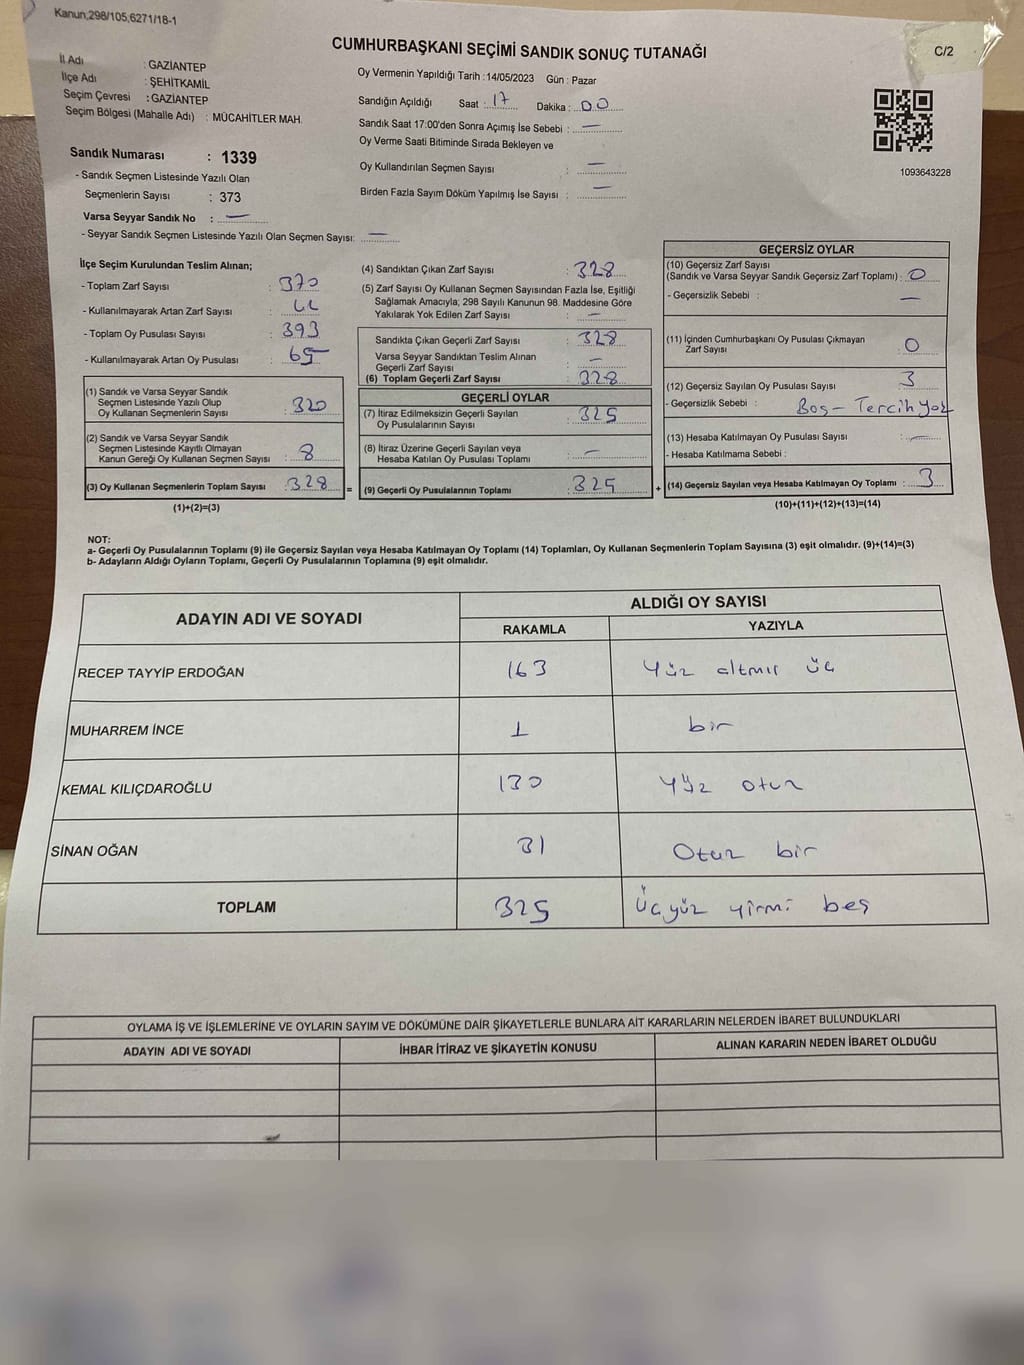 Kanun,298/105,6271/18-1
CUMHURBAŞKANI SEÇİMİ SANDIK SONUÇ TUTANAĞI
C/2
İl Adı : GAZİANTEP
İlçe Adı : ŞEHİTKAMİL
Seçim Çevresi : GAZİANTEP
Seçim Bölgesi (Mahalle Adı) : MÜCAHİTLER MAH.
Sandık Numarası : 1339
- Sandık Seçmen Listesinde Yazılı Olan
Seçmenlerin Sayısı : 373
Varsa Seyyar Sandık No : —
- Seyyar Sandık Seçmen Listesinde Yazılı Olan Seçmen Sayısı: —
Oy Vermenin Yapıldığı Tarih :14/05/2023 Gün : Pazar
Sandığın Açıldığı Saat : 17 Dakika : 00
Sandık Saat 17:00'den Sonra Açımış İse Sebebi : —
Oy Verme Saati Bitiminde Sırada Bekleyen ve
Oy Kullandırılan Seçmen Sayısı : —
Birden Fazla Sayım Döküm Yapılmış İse Sayısı : —
1093643228
İlçe Seçim Kurulundan Teslim Alınan;
- Toplam Zarf Sayısı : 370
- Kullanılmayarak Artan Zarf Sayısı :
- Toplam Oy Pusulası Sayısı : 393
- Kullanılmayarak Artan Oy Pusulası : 65
(1) Sandık ve Varsa Seyyar Sandık
Seçmen Listesinde Yazılı Olup
Oy Kullanan Seçmenlerin Sayısı : 320
(2) Sandık ve Varsa Seyyar Sandık
Seçmen Listesinde Kayıtlı Olmayan
Kanun Gereği Oy Kullanan Seçmen Sayısı : 8
(3) Oy Kullanan Seçmenlerin Toplam Sayısı : 328 =
(1)+(2)=(3)
(4) Sandıktan Çıkan Zarf Sayısı : 328
(5) Zarf Sayısı Oy Kullanan Seçmen Sayısından Fazla İse, Eşitliği
Sağlamak Amacıyla; 298 Sayılı Kanunun 98. Maddesine Göre
Yakılarak Yok Edilen Zarf Sayısı : —
Sandıkta Çıkan Geçerli Zarf Sayısı : 328
Varsa Seyyar Sandıktan Teslim Alınan
Geçerli Zarf Sayısı : —
(6) Toplam Geçerli Zarf Sayısı : 328
GEÇERLİ OYLAR
(7) İtiraz Edilmeksizin Geçerli Sayılan
Oy Pusulalarının Sayısı : 325
(8) İtiraz Üzerine Geçerli Sayılan veya
Hesaba Katılan Oy Pusulaları Toplamı : —
(9) Geçerli Oy Pusulalarının Toplamı : 325 +
GEÇERSİZ OYLAR
(10) Geçersiz Zarf Sayısı
(Sandık ve Varsa Seyyar Sandık Geçersiz Zarf Toplamı) : 0
- Geçersizlik Sebebi : —
(11) İçinden Cumhurbaşkanı Oy Pusulası Çıkmayan
Zarf Sayısı : 0
(12) Geçersiz Sayılan Oy Pusulası Sayısı : 3
- Geçersizlik Sebebi : Boş - Tercih yok
(13) Hesaba Katılmayan Oy Pusulası Sayısı : —
- Hesaba Katılmama Sebebi :
(14) Geçersiz Sayılan veya Hesaba Katılmayan Oy Toplamı : 3
(10)+(11)+(12)+(13)=(14)
NOT:
a- Geçerli Oy Pusulalarının Toplamı (9) ile Geçersiz Sayılan veya Hesaba Katılmayan Oy Toplamı (14) Toplamları, Oy Kullanan Seçmenlerin Toplam Sayısına (3) eşit olmalıdır. (9)+(14)=(3)
b- Adayların Aldığı Oyların Toplamı, Geçerli Oy Pusulalarının Toplamına (9) eşit olmalıdır.
ADAYIN ADI VE SOYADI ALDIĞI OY SAYISI
RAKAMLA YAZIYLA
RECEP TAYYİP ERDOĞAN 163 Yüz altmış üç
MUHARREM İNCE 1 bir
KEMAL KILIÇDAROĞLU 130 Yüz otuz
SİNAN OĞAN 31 Otuz bir
TOPLAM 325 Üçyüz yirmi beş
OYLAMA İŞ VE İŞLEMLERİNE VE OYLARIN SAYIM VE DÖKÜMÜNE DAİR ŞİKAYETLERLE BUNLARA AİT KARARLARIN NELERDEN İBARET BULUNDUKLARI
ADAYIN ADI VE SOYADI İHBAR İTİRAZ VE ŞİKAYETİN KONUSU ALINAN KARARIN NEDEN İBARET OLDUĞU